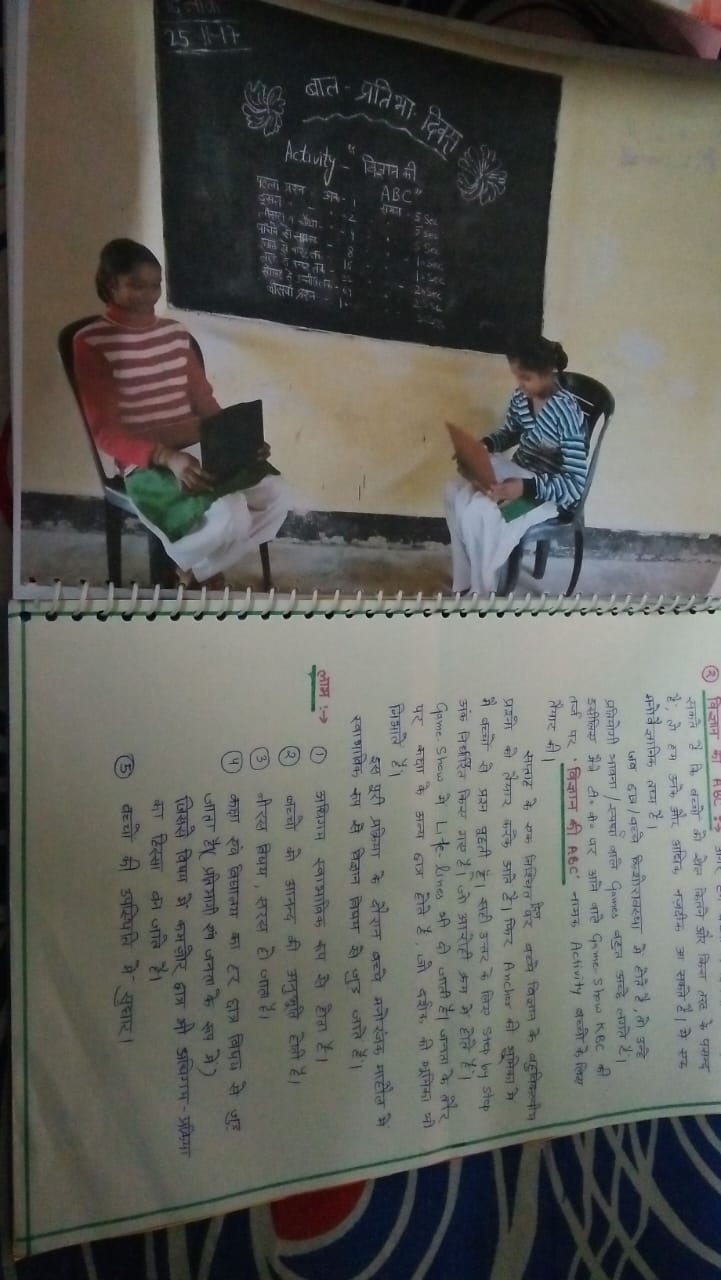 दिनांक
25-11-17
बाल - प्रतिभा दिवस
Activity - " विज्ञान की
ABC"
पहला प्रश्न - अंक - 1 समय - 5 Sec
② विज्ञान की ABC :-
सकते हैं कि बच्चों को खेल कितने और किस तरह के पसन्द
हैं, तो हम उनके और अधिक नजदीक आ सकते हैं। ये सब
मनोवैज्ञानिक तथ्य हैं।
जब छात्र/बच्चे किशोरावस्था में होते हैं, तो उन्हें
प्रतियोगी भावना/स्पर्धा वाले Games बहुत अच्छे लगते हैं।
इसीलिए मैंने टी० वी० पर आने वाले Game Show KBC की
तर्ज पर 'विज्ञान की ABC' नामक Activity बच्चों के लिए
तैयार की।
सप्ताह के एक निश्चित दिन पर बच्चे विज्ञान के बहुविकल्पीय
प्रश्नों को तैयार करके आते हैं। फिर Anchor की भूमिका में
मैं बच्चों से प्रश्न पूछती हूँ। सही उत्तर के लिए Step by Step
अंक निर्धारित किए गए हैं। जो आरोही क्रम में होते हैं।
Game Show में Life-lines भी दी जाती हैं। जनता के तौर
पर कक्षा के अन्य छात्र होते हैं, जो दर्शक की भूमिका भी
निभाते हैं।
इस पूरी प्रक्रिया के दौरान बच्चे मनोरंजक माहौल में
स्वाभाविक रूप से विज्ञान विषय से जुड़ जाते हैं।
लाभ :→
① अधिगम स्वाभाविक रूप से होता है।
② बच्चों को आनन्द की अनुभूति होती है।
③ नीरस विषय, सरस हो जाता है।
④ कक्षा एवं विद्यालय का हर छात्र विषय से जुड़
जाता है। (प्रतिभागी एवं जनता के रूप में)
जिससे विषय में कमजोर छात्र भी अधिगम-प्रक्रिया
का हिस्सा बन जाते हैं।
⑤ बच्चों की उपस्थिति में सुधार।